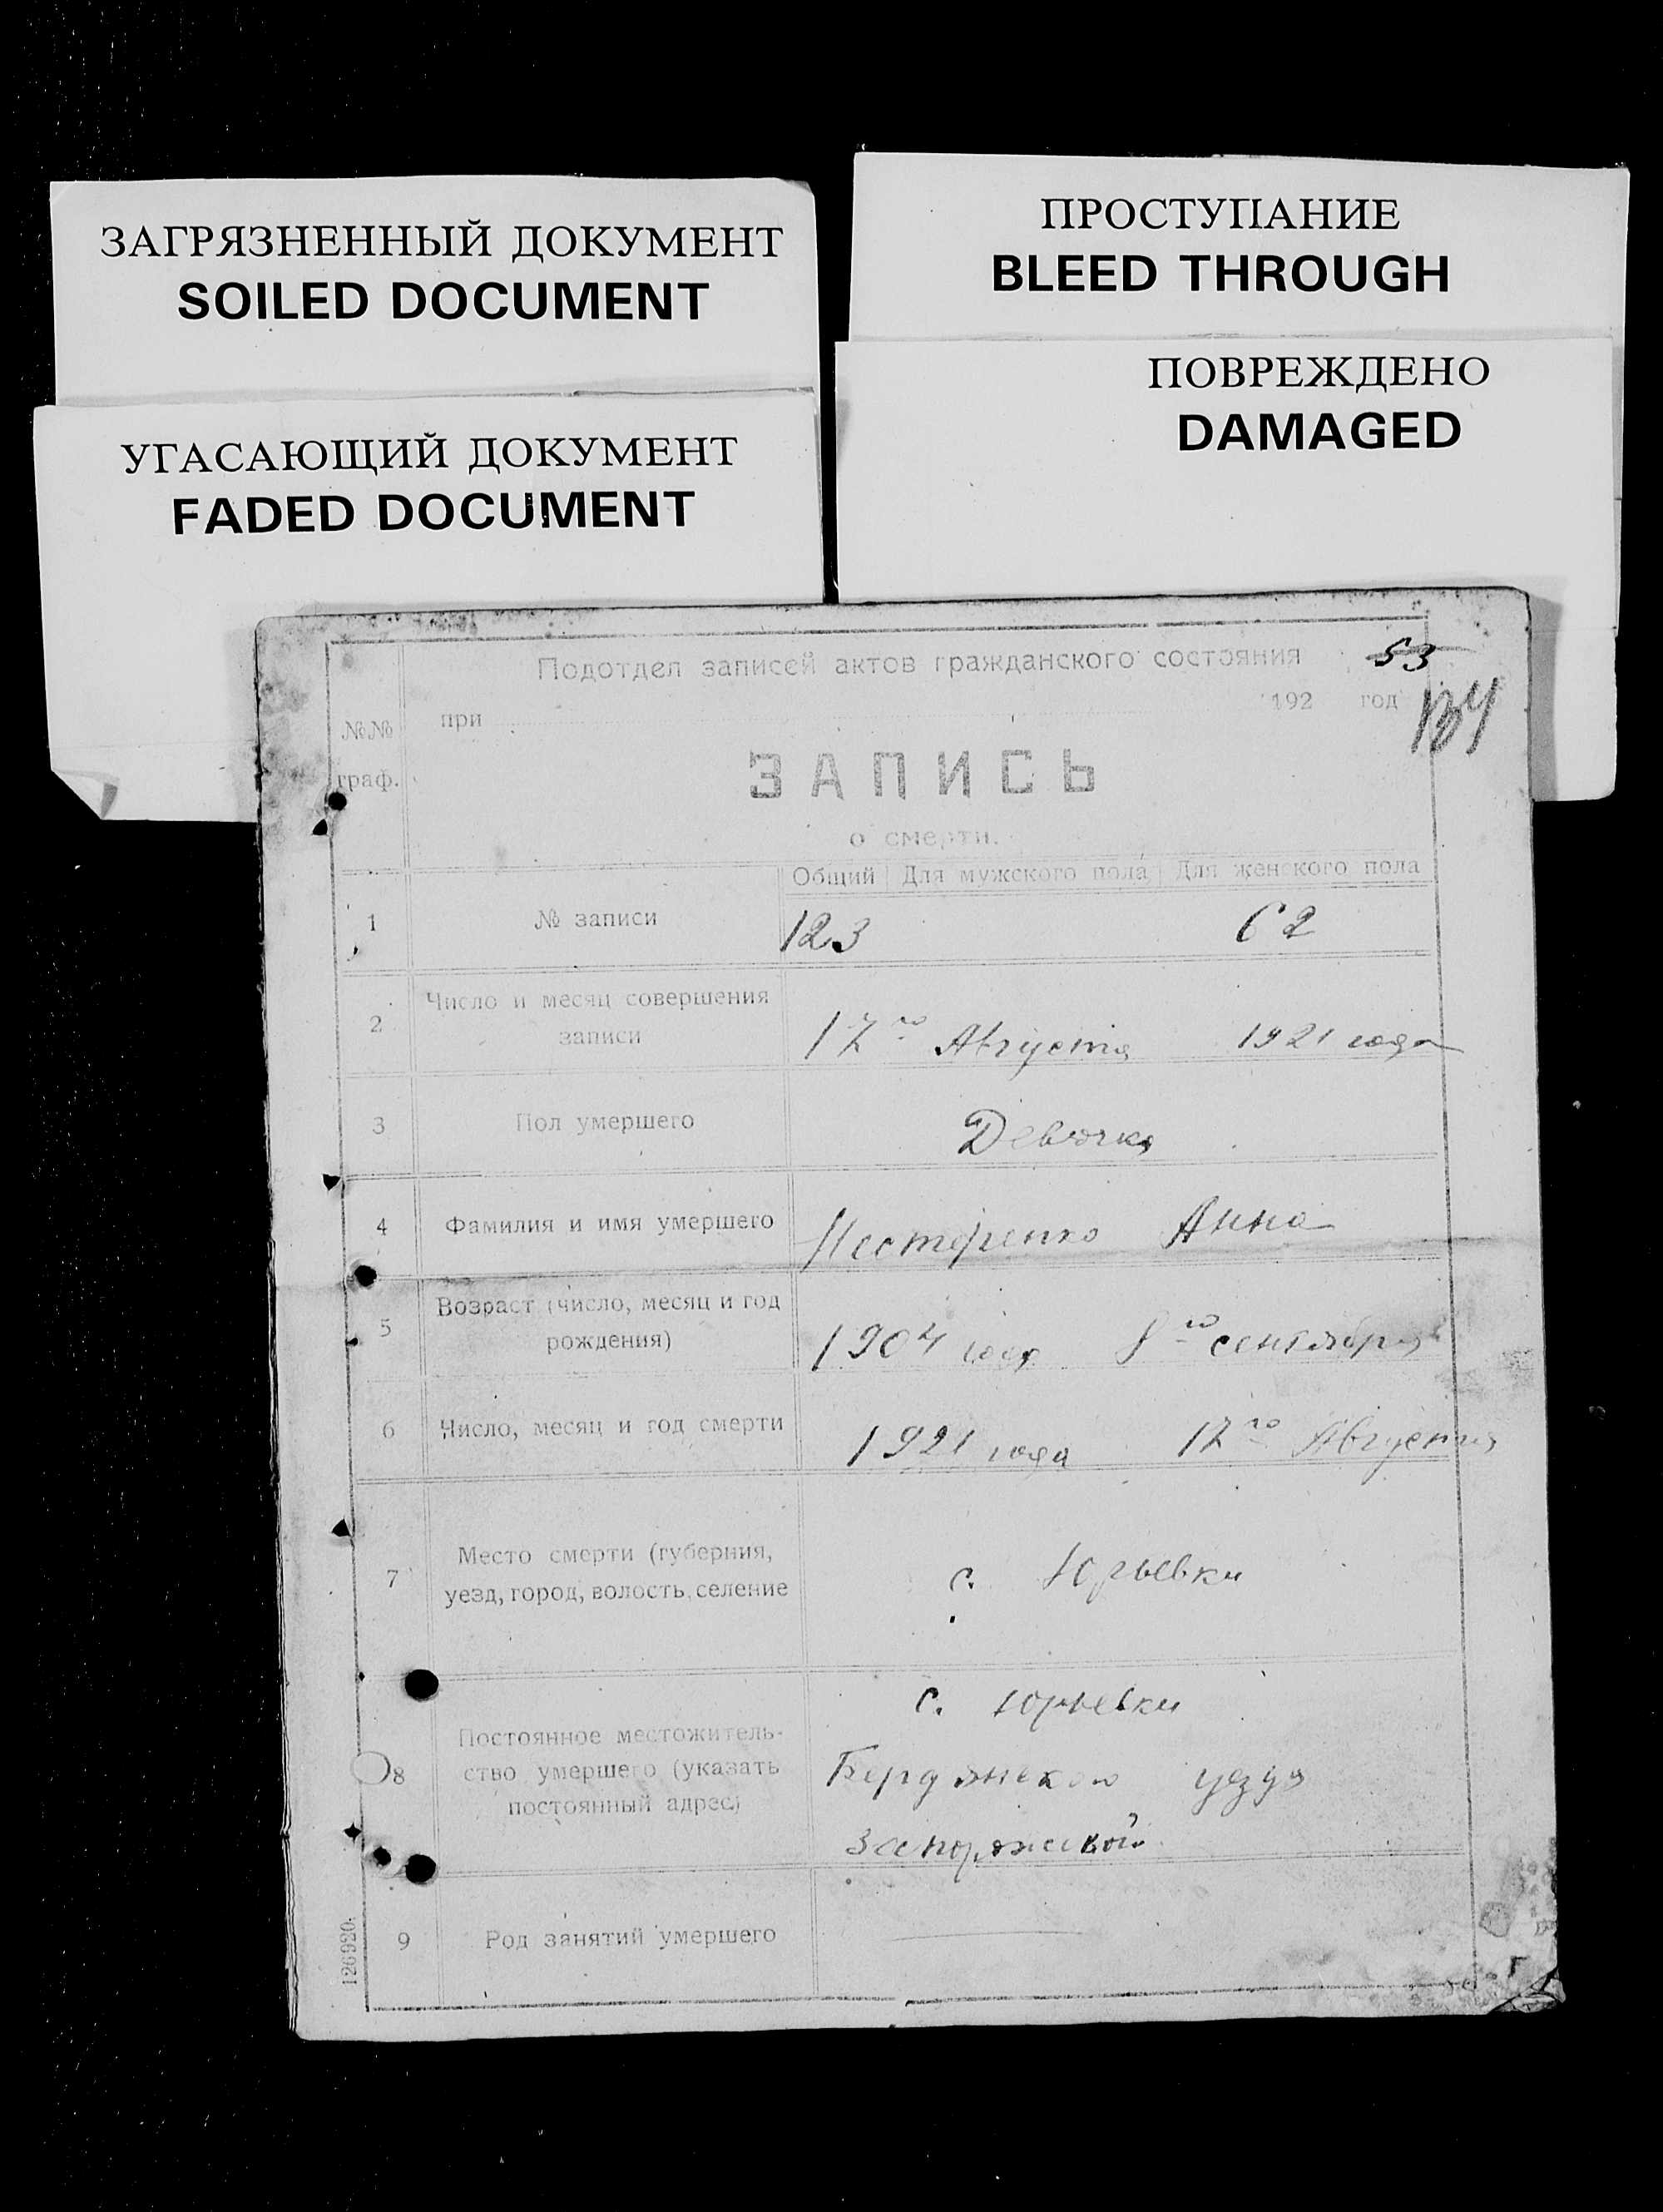 ЗАГРЯЗНЕННЫЙ ДОКУМЕНТ
SOILED DOCUMENT
ПРОСТУПАНИЕ
BLEED THROUGH
УГАСАЮЩИЙ ДОКУМЕНТ
FADED DOCUMENT
ПОВРЕЖДЕНО
DAMAGED
53
Подотдел записей актов гражданского состояния
при 192 год
134
№№
граф.
ЗАПИСЬ
о смерти.
Общий Для мужского пола Для женского пола
1 № записи 123 62
2 Число и месяц совершения
записи
17го Августа 1921 года
3 Пол умершего Девочка
4 Фамилия и имя умершего Нестеренко Анна
5 Возраст (число, месяц и год
рождения)
1904 года 8го сентября
6 Число, месяц и год смерти 1921 года 17го Августа
7 Место смерти (губерния,
уезд, город, волость, селение
с. Юрьевки
8 Постоянное местожитель-
ство умершего (указать
постоянный адрес)
с. Юрьевки
Бердянского уезда
Запоряжской
9 Род занятий умершего
126920.